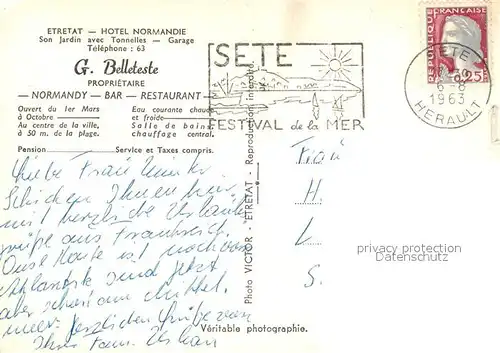 ETRETAT — HOTEL NORMANDIE
Son Jardin avec Tonnelles — Garage
Téléphone : 63
G. Belleteste
PROPRIÉTAIRE
— NORMANDY — BAR — RESTAURANT —
Ouvert du 1er Mars
à Octobre
Au centre de la ville,
à 50 m. de la plage.
Eau courante chaude
et froide
Salle de bains,
chauffage central.
Pension Service et Taxes compris.
Liebe Frau
Schicken Ihnen hier
mit herzliche Urlaubs
grüße aus Frankreich.
Unsere Route ist noch von
sind jetzt
aber schon am Mittel
meer. Herzlichen Grüße von
Ihrer Fam. Urban
Véritable photographie.
Photo VICTOR - ETRETAT - Reproduction interdite
SETE
FESTIVAL de la MER
SETE
6-8
1963
HERAULT
REPUBLIQUE FRANÇAISE
0,25F
Frau
H.
L
S.
privacy protection
Datenschutz